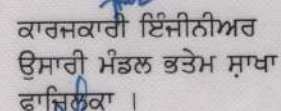 ਕਾਰਜਕਾਰੀ ਇੰਜੀਨੀਅਰ
ਉਸਾਰੀ ਮੰਡਲ ਭਤੇਮ ਸ਼ਾਖਾ
ਫਾਜ਼ਿਲਕਾ ।